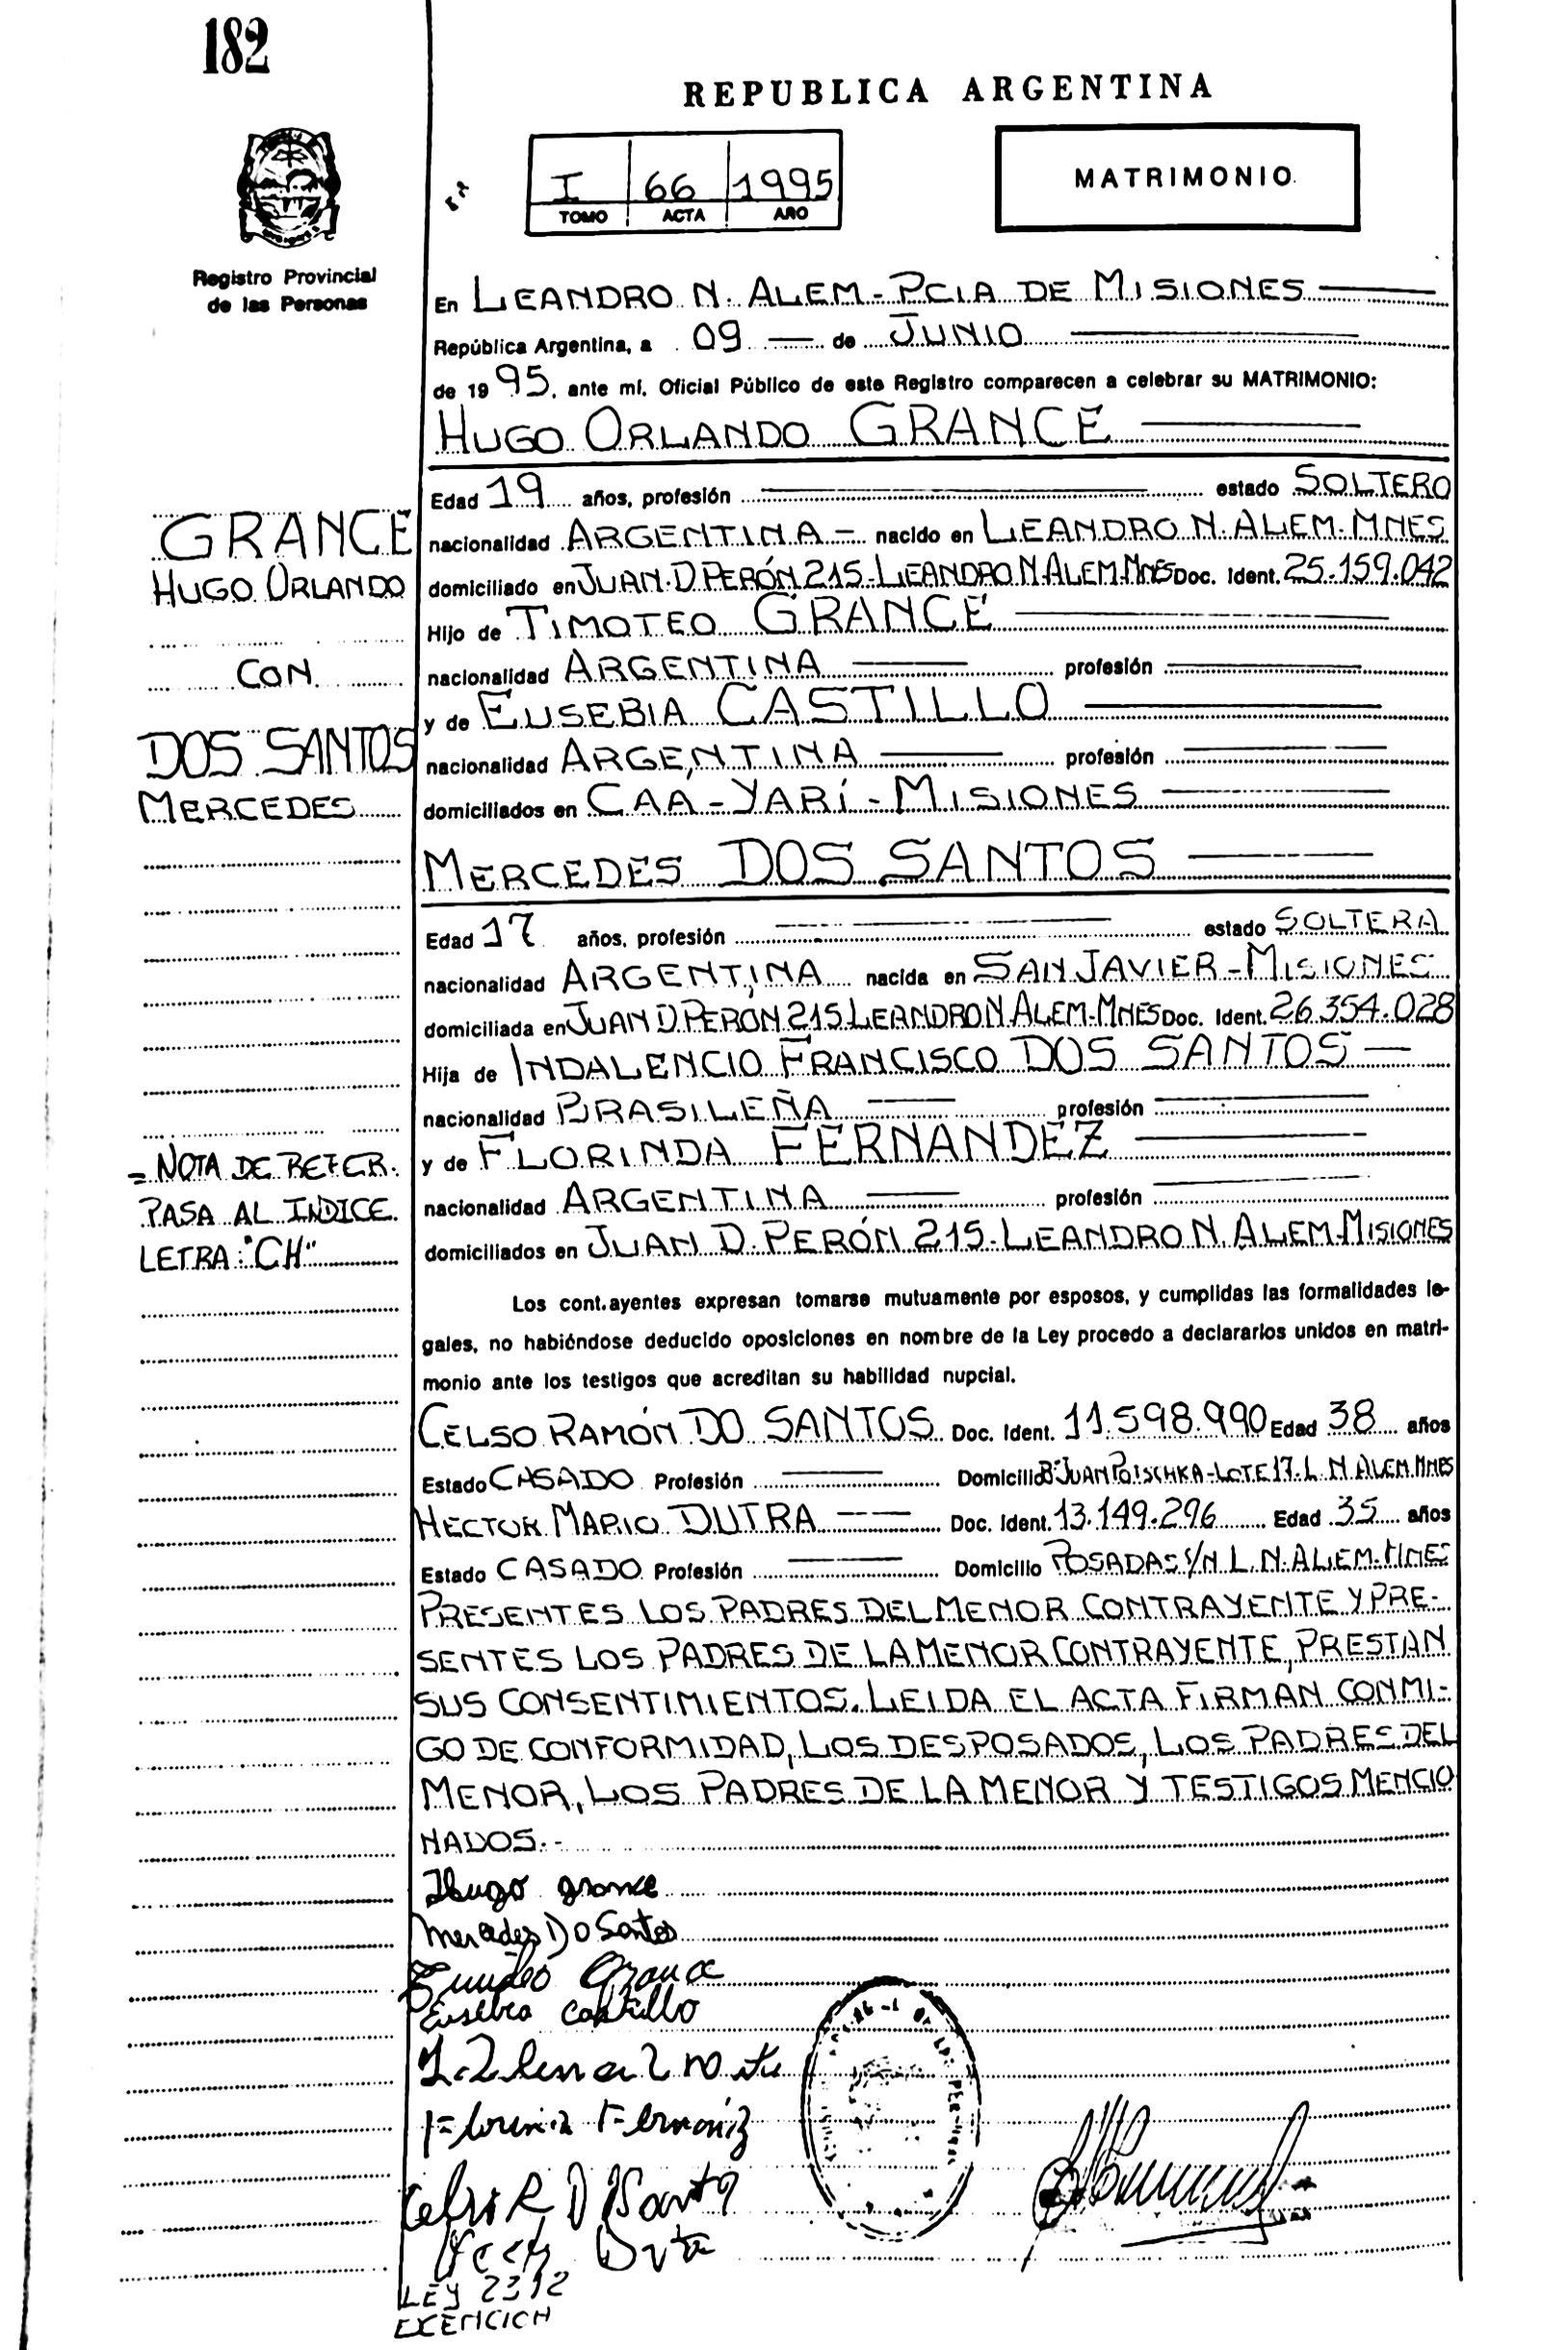 182
REPUBLICA ARGENTINA
I 66 1995
TOMO ACTA AÑO
MATRIMONIO
Registro Provincial
de las Personas
En LEANDRO N. ALEM - PCIA DE MISIONES
República Argentina, a 09 de JUNIO
de 1995, ante mí, Oficial Público de este Registro comparecen a celebrar su MATRIMONIO:
HUGO ORLANDO GRANCE
Edad 19 años, profesión estado SOLTERO
nacionalidad ARGENTINA - nacido en LEANDRO N. ALEM. MNES
domiciliado en JUAN D. PERÓN 215 - LEANDRO N. ALEM. MNES Doc. Ident. 25.159.042
Hijo de TIMOTEO GRANCE
nacionalidad ARGENTINA profesión
y de EUSEBIA CASTILLO
nacionalidad ARGENTINA profesión
domiciliados en CAA-YARÍ - MISIONES
GRANCE
HUGO ORLANDO
CON
DOS SANTOS
MERCEDES
MERCEDES DOS SANTOS
Edad 17 años, profesión estado SOLTERA
nacionalidad ARGENTINA nacida en SAN JAVIER - MISIONES
domiciliada en JUAN D. PERON 215 LEANDRO N. ALEM - MNES Doc. Ident. 26.354.028
Hija de INDALENCIO FRANCISCO DOS SANTOS -
nacionalidad BRASILEÑA profesión
y de FLORINDA FERNANDEZ
nacionalidad ARGENTINA profesión
domiciliados en JUAN D. PERÓN 215 - LEANDRO N. ALEM - MISIONES
= NOTA DE REFER.
PASA AL INDICE
LETRA: "CH"
Los cont.ayentes expresan tomarse mutuamente por esposos, y cumplidas las formalidades le-
gales, no habiéndose deducido oposiciones en nombre de la Ley procedo a declararlos unidos en matri-
monio ante los testigos que acreditan su habilidad nupcial.
CELSO RAMÓN DO SANTOS Doc. Ident. 11.598.990 Edad 38 años
Estado CASADO Profesión Domicilio B° JUAN POISCHKA - LOTE 17 - L. N. ALEM. MNES
HECTOR MARIO DUTRA Doc. Ident. 13.149.296 Edad 35 años
Estado CASADO Profesión Domicilio POSADAS S/N L. N. ALEM - MNES
PRESENTES LOS PADRES DEL MENOR CONTRAYENTE Y PRE-
SENTES LOS PADRES DE LA MENOR CONTRAYENTE, PRESTAN
SUS CONSENTIMIENTOS. LEIDA EL ACTA FIRMAN CONMI-
GO DE CONFORMIDAD, LOS DESPOSADOS, LOS PADRES DEL
MENOR, LOS PADRES DE LA MENOR Y TESTIGOS MENCIO
NADOS.-
Hugo grance
Mercedes Do Santos
Eusebia Castillo
LEY 2312
EXENCION